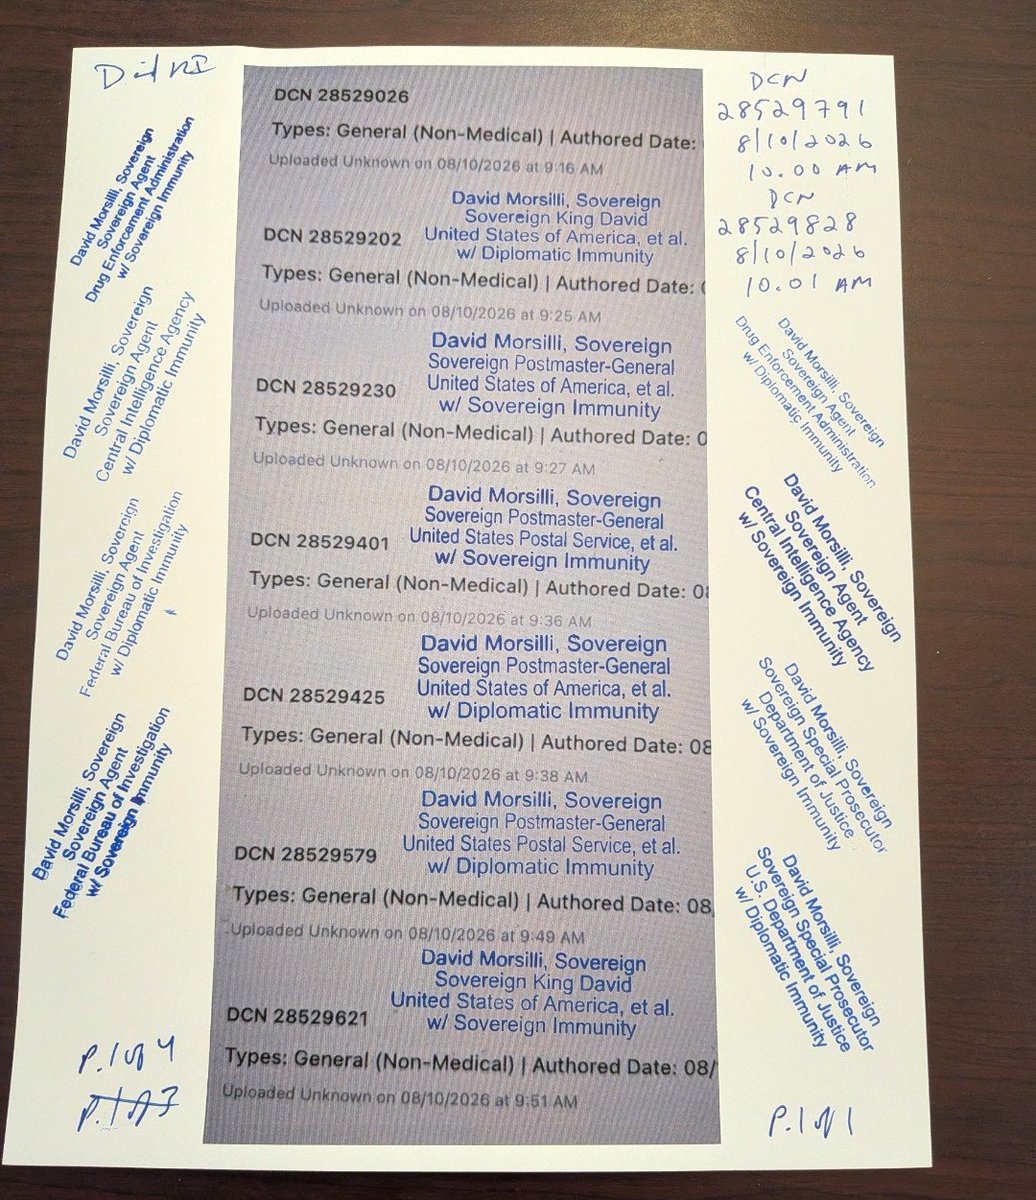 DCN 28529026
Types: General (Non-Medical) | Authored Date:
Uploaded Unknown on 08/10/2026 at 9:16 AM
David Morsilli, Sovereign
Sovereign King David
United States of America, et al.
w/ Diplomatic Immunity
DCN 28529202
Types: General (Non-Medical) | Authored Date: (
Uploaded Unknown on 08/10/2026 at 9:25 AM
David Morsilli, Sovereign
Sovereign Postmaster-General
United States of America, et al.
w/ Sovereign Immunity
DCN 28529230
Types: General (Non-Medical) | Authored Date: 0
Uploaded Unknown on 08/10/2026 at 9:27 AM
David Morsilli, Sovereign
Sovereign Postmaster-General
United States Postal Service, et al.
w/ Sovereign Immunity
DCN 28529401
Types: General (Non-Medical) | Authored Date: 08
Uploaded Unknown on 08/10/2026 at 9:36 AM
David Morsilli, Sovereign
Sovereign Postmaster-General
United States of America, et al.
w/ Diplomatic Immunity
DCN 28529425
Types: General (Non-Medical) | Authored Date: 08
Uploaded Unknown on 08/10/2026 at 9:38 AM
David Morsilli, Sovereign
Sovereign Postmaster-General
United States Postal Service, et al.
w/ Diplomatic Immunity
DCN 28529579
Types: General (Non-Medical) | Authored Date: 08/
Uploaded Unknown on 08/10/2026 at 9:49 AM
David Morsilli, Sovereign
Sovereign King David
United States of America, et al.
w/ Sovereign Immunity
DCN 28529621
Types: General (Non-Medical) | Authored Date: 08/
Uploaded Unknown on 08/10/2026 at 9:51 AM
David Morsilli, Sovereign
Sovereign Agent
Drug Enforcement Administration
w/ Sovereign Immunity
David Morsilli, Sovereign
Sovereign Agent
Central Intelligence Agency
w/ Diplomatic Immunity
David Morsilli, Sovereign
Sovereign Agent
Federal Bureau of Investigation
w/ Diplomatic Immunity
David Morsilli, Sovereign
Sovereign Agent
Federal Bureau of Investigation
w/ Sovereign Immunity
P. 1 of 4
P. 1 of 3
DCN
28529791
8/10/2026
10.00 AM
DCN
28529828
8/10/2026
10.01 AM
David Morsilli, Sovereign
Sovereign Agent
Drug Enforcement Administration
w/ Diplomatic Immunity
David Morsilli, Sovereign
Sovereign Agent
Central Intelligence Agency
w/ Sovereign Immunity
David Morsilli, Sovereign
Sovereign Special Prosecutor
Department of Justice
w/ Sovereign Immunity
David Morsilli, Sovereign
Sovereign Special Prosecutor
U.S. Department of Justice
w/ Diplomatic Immunity
P. 1 of 1